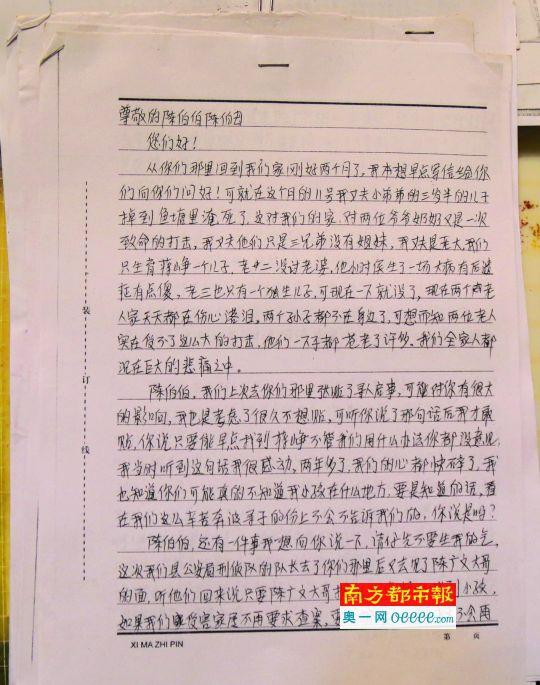 尊敬的陈伯伯陈伯母
您们好！
从你们那里回到我们家刚好两个月了，我本想早点写信给你
们向你们问好！可就在这个月的11号我丈夫小弟弟的三岁半的儿子
掉到鱼塘里淹死了，这对我们的家，对两位爷爷奶奶又是一次
致命的打击，我丈夫他们只是三兄弟没有姐妹，我丈夫是老大，我们
只生育 一个儿子，老二没讨老婆，他小时侯生了一场大病有后遗
症有点傻，老三也只有一个独生儿子，可现在一下就没了，现在两个 老
人家天天都在伤心落泪，两个孙子都不在身边了，可想而知两位老人
实在受不了这么大的打击，他们一下子都苍老了许多，我们全家人都
沉在巨大的悲痛之中。
陈伯伯，我们上次去你们那里张贴了寻人启事，可能对你有很大
的影响，我也是考虑了很久不想贴，可听你说了那句话后我才敢
贴，你说只要能早点找到 不管我们用什么办法你都没意见，
我当时听到这句话我很感动，两年多了，我们的心都快碎了，我
也知道你们可能真的不知道我小孩在什么地方，要是知道的话，看
在我们这么辛苦奔波寻子的份上不会不告诉我们的，你说是吗？
陈伯伯，还有一件事我想向你说一下，请你先不要生我的气，
这次我们县公安局刑侦队的队长去了你们那里后又去见了陈广文大哥
的面，听他们回来说只要陈广文大哥 到小孩，
如果我们 受害家属不再要求查案， 不会再
南方都市報
奥一网 oeeee.com
XI MA ZHI PIN
第 页
装
订
线